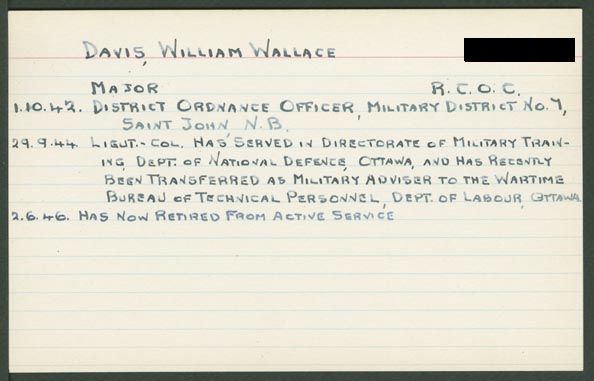 DAVIS, WILLIAM WALLACE
MAJOR R.C.O.C.
1.10.42. DISTRICT ORDNANCE OFFICER, MILITARY DISTRICT NO. 7,
SAINT JOHN N.B.
29.9.44 LIEUT.-COL. HAS SERVED IN DIRECTORATE OF MILITARY TRAIN-
ING, DEPT. OF NATIONAL DEFENCE, OTTAWA, AND HAS RECENTLY
BEEN TRANSFERRED AS MILITARY ADVISER TO THE WARTIME
BUREAU OF TECHNICAL PERSONNEL, DEPT. OF LABOUR, OTTAWA
2.6.46. HAS NOW RETIRED FROM ACTIVE SERVICE